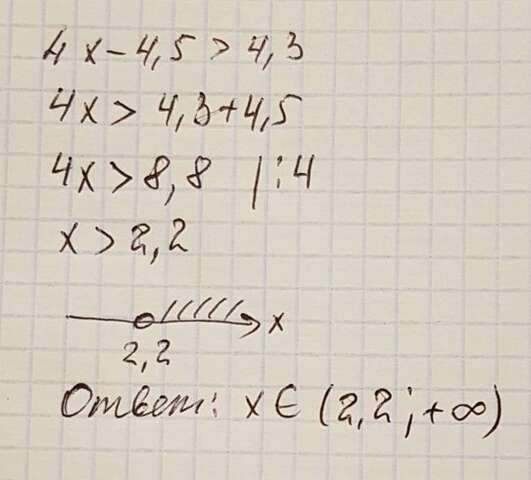 4x-4,5 > 4,3
4x > 4,3+4,5
4x > 8,8 |:4
x > 2,2
x
2,2
Ответ: x ∈ (2,2; +∞)